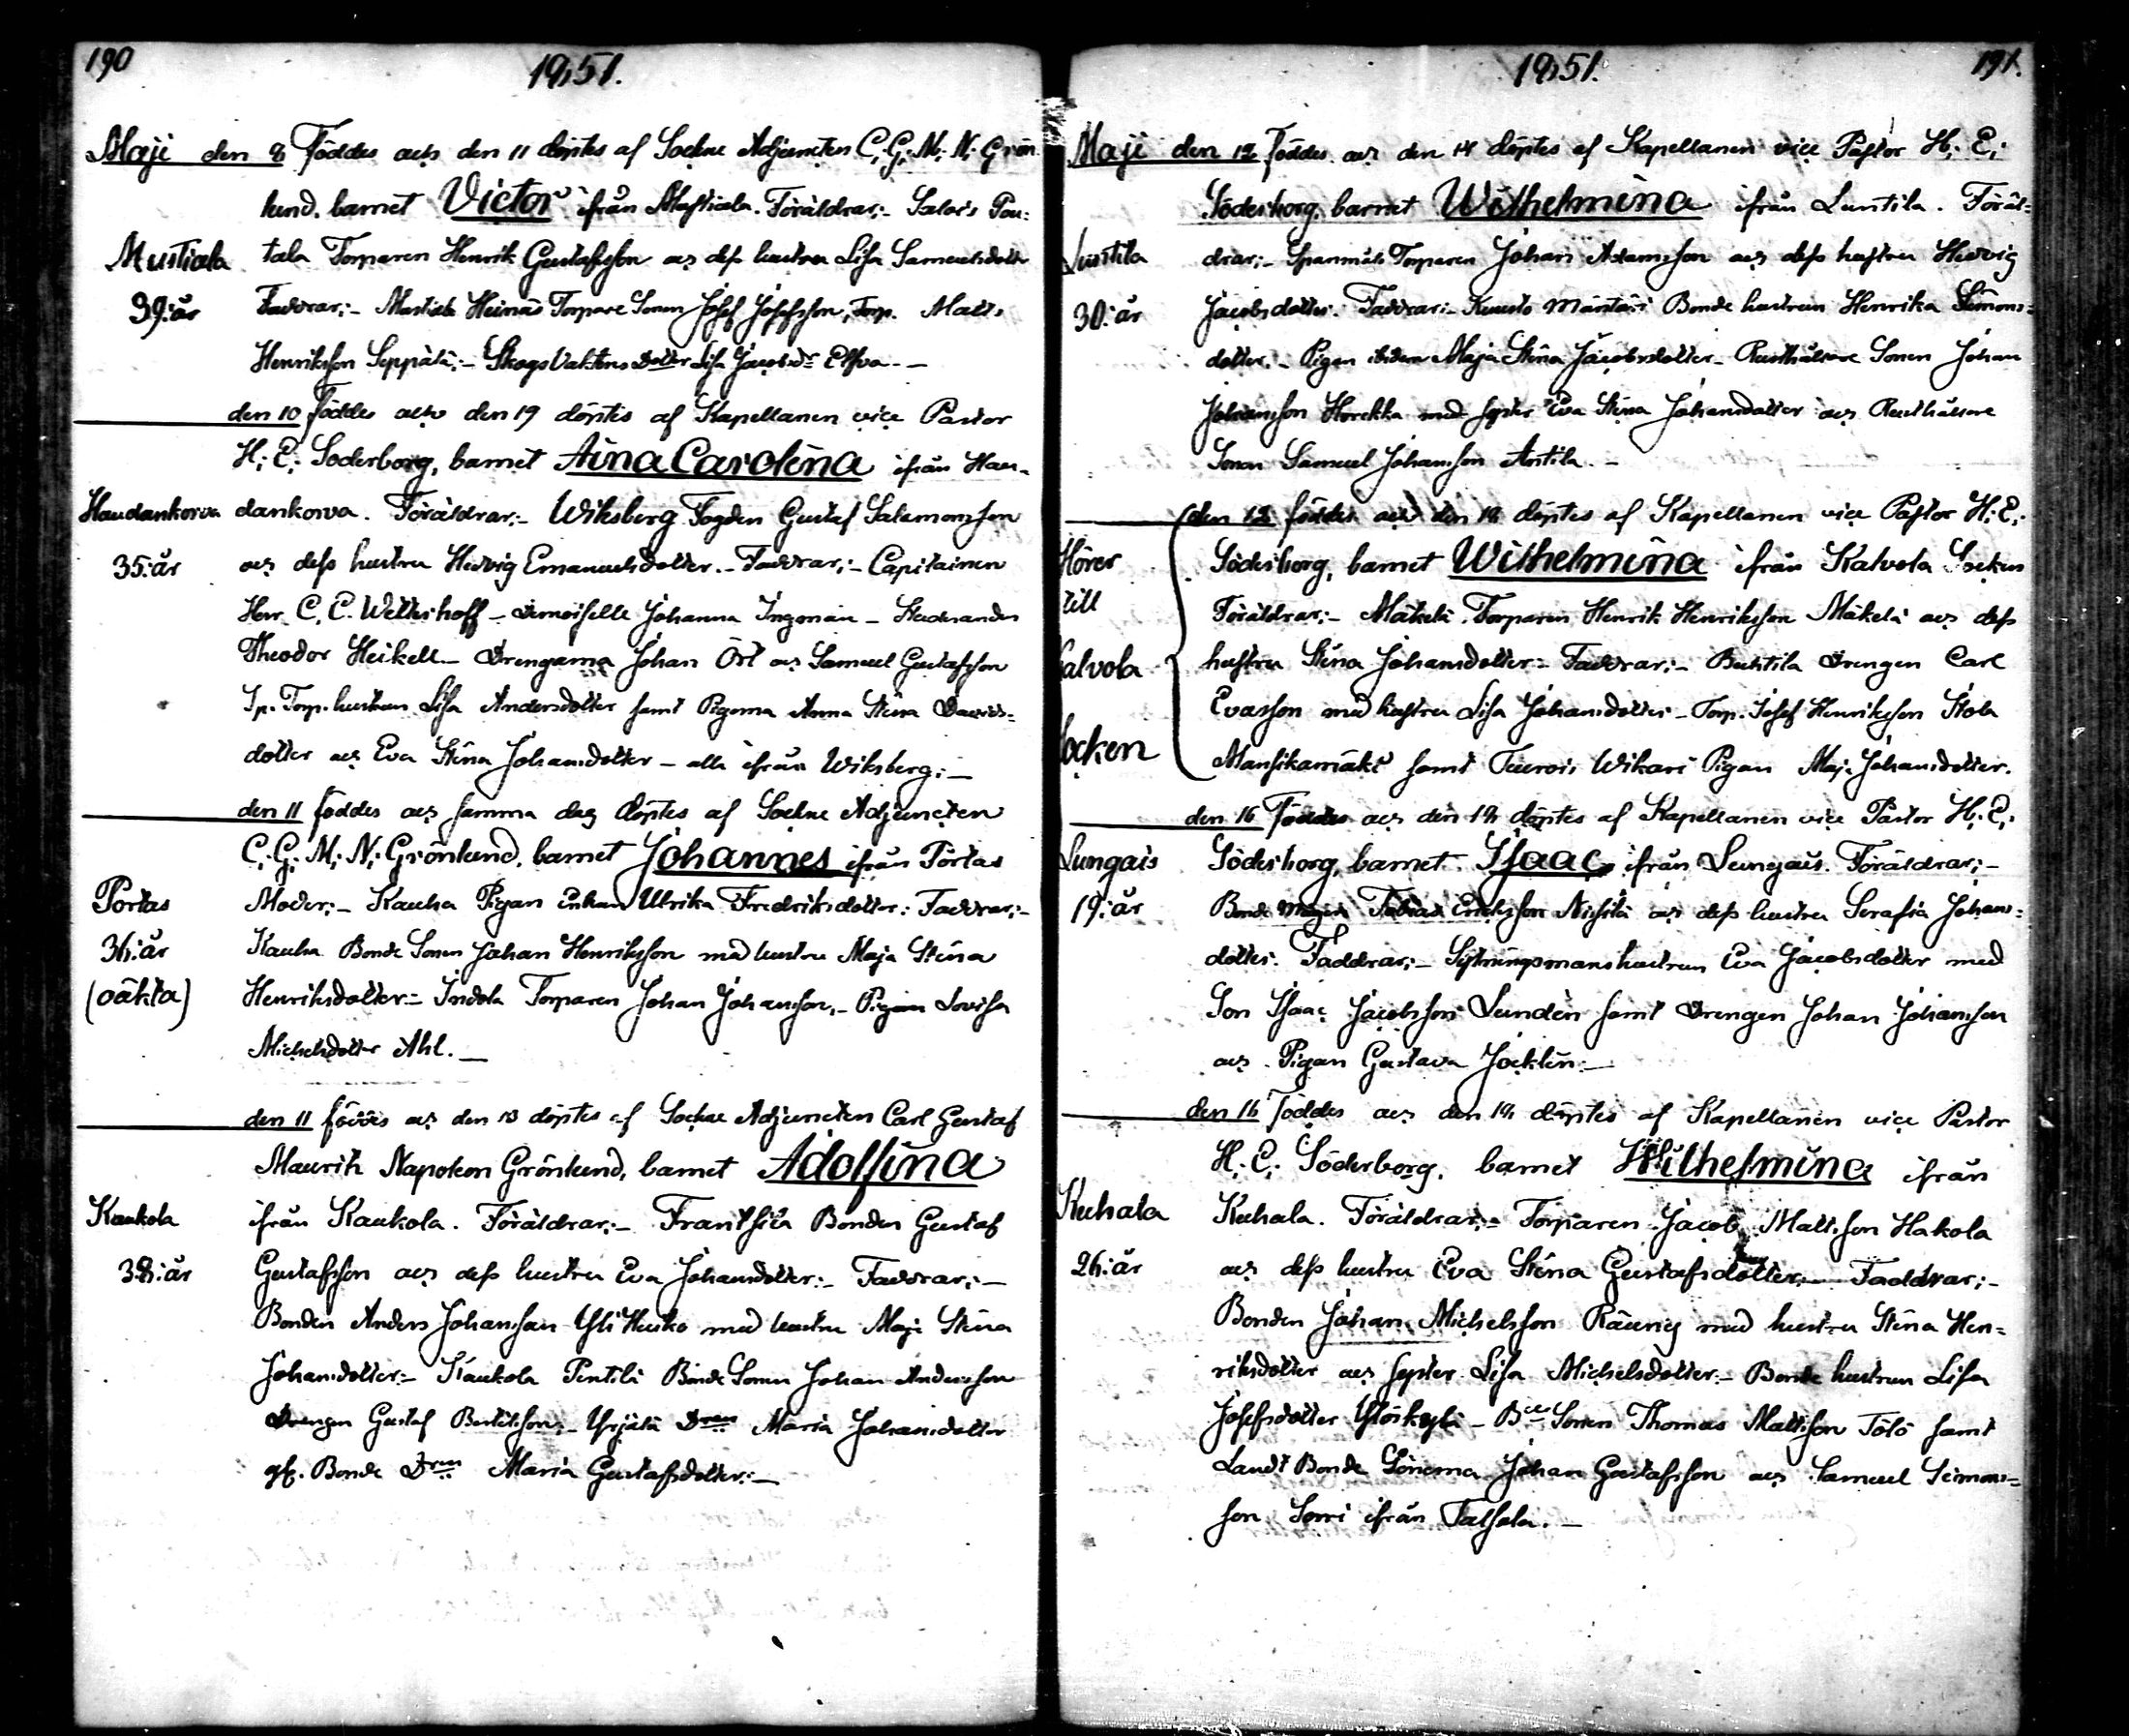 190
1851.
Maji den 8 Föddes och den 11 döptes af Sockne Adjuncten C. G. M. N. Grön
lund, barnet Victor ifrån Mustiala. Föräldrar:- Salais Pou:
Mustiala
tala Torparen Henrik Gustafsson och dess hustru Lisa Samuelsdotter
39: år
Faddrar:- Mustiala Heinäs Torpare Sonen Josef Josefsson, Torp. Matts
Henriksson Seppälä:- Skogs Vaktens Dotter Lisa Jacobsdr
den 10 föddes och den 19 döptes af Kapellanen vice Pastor
H. E. Söderborg, barnet Aina Carolina ifrån Hau-
Haudankorva
dankorva. Föräldrar:- Wiksberg Fogden Gustaf Salamonsson
35: år
och dess hustru Hedvig Emanuelsdotter.- Faddrar:- Capitainen
Herr C. C. Wetterhoff - Demoiselle Johanna Ingman - Studeranden
Theodor Heikell - Drengarna Johan Ört och Samuel Gustafsson
Sp. Torp. hustrun Lisa Andersdotter samt Pigorna Anna Stina Davids-
dotter och Eva Stina Johansdotter - alla ifrån Wiksberg:-
den 11 föddes och samma dag döptes af Sockne Adjuncten
C. G. M. N. Grönlund, barnet Johannes ifrån Portas
Portas
Moder:- Kauha Pigan Enkan Ulrika Fredriksdotter: Faddrar:-
36: år
Kauha Bonde Sonen Johan Henriksson med hustru Maja Stina
(oäkta)
Henriksdotter:- Torparen Johan Johansson,- Pigan Lovisa
Michelsdotter Ahl.-
den 11 föddes och den 13 döptes af Sockne Adjuncten Carl Gustaf
Maurits Napoleon Grönlund, barnet Adolfina
Kaukola
ifrån Kaukola. Föräldrar:- Frantsila Bonden Gustaf
38: år
Gustafsson och dess hustru Eva Johansdotter:- Faddrar:-
Bonden Anders Johansson Yli Heiko med hustru Maja Stina
Johansdotter:- Kaukola Pentilä Bonde Sonen Johan Andersson
Drengen Gustaf Bertilsson:- Yrjälä Dren Maria Johansdotter
gl. Bonde Dren Maria Gustafsdotter:-
1851.
191.
Maji den 12 föddes och den 14 döptes af Kapellanen vice Pastor H. E.
Söderborg, barnet Wilhelmina ifrån Luntila. Föräl-
Luntila
drar:- Spanmåls Torparen Johan Adamsson och dess hustru Hedvig
30: år
Jacobsdotter. Faddrar:- Kuusto Mäntäri Bonde hustrun Henrika Simons-
dotter.- Pigan ibidem Maja Stina Jacobsdotter - Rusthållare Sonen Johan
Johansson Horkka med syster Eva Stina Johansdotter och Rusthållare
Sonen Samuel Johansson Antila.-
den 12 föddes och den 18 döptes af Kapellanen vice Pastor H. E.
Hörer
Söderborg, barnet Wilhelmina ifrån Kalvola Socken
till
Föräldrar:- Mäkelä Torparen Henrik Henriksson Mäkelä och dess
Kalvola
hustru Stina Johansdotter:- Faddrar:- Buntila Drengen Carl
Evasson med hustru Lisa Johansdotter - Torp. Josef Henriksson Stola
Socken
Mansikamäki samt Turois Wikari Pigan Maja Johansdotter.
den 16 föddes och den 18 döptes af Kapellanen vice Pastor H. E.
Lungais
Söderborg, barnet Isaac, ifrån Lungais. Föräldrar:-
19: år
Bonde Mågen Tobias Ericksson Nisilä och dess hustru Serafia Johans-
dotter. Faddrar:- Sytningsmanshustrun Eva Jacobsdotter med
Son Isaac Jacobsson Lundén samt Drengen Johan Johansson
och Pigan Gustava Jocklin:-
den 16 föddes och den 18 döptes af Kapellanen vice Pastor
H. E. Söderborg, barnet Wilhelmina ifrån
Kuhala
Kuhala. Föräldrar:- Torparen Jacob Mattsson Hakola
26: år
och dess hustru Eva Stina Gustafsdotter:- Faddrar:-
Bonden Johan Michelsson Räuny med hustru Stina Hen-
riksdotter och syster Lisa Michelsdotter - Bonde hustrun Lisa
Josefsdotter Ylöskylä - Bde Sonen Thomas Mattsson Tölö samt
Landt Bonde Sönerna Johan Gustafsson och Samuel Simons-
son Sorri ifrån Talsola.-